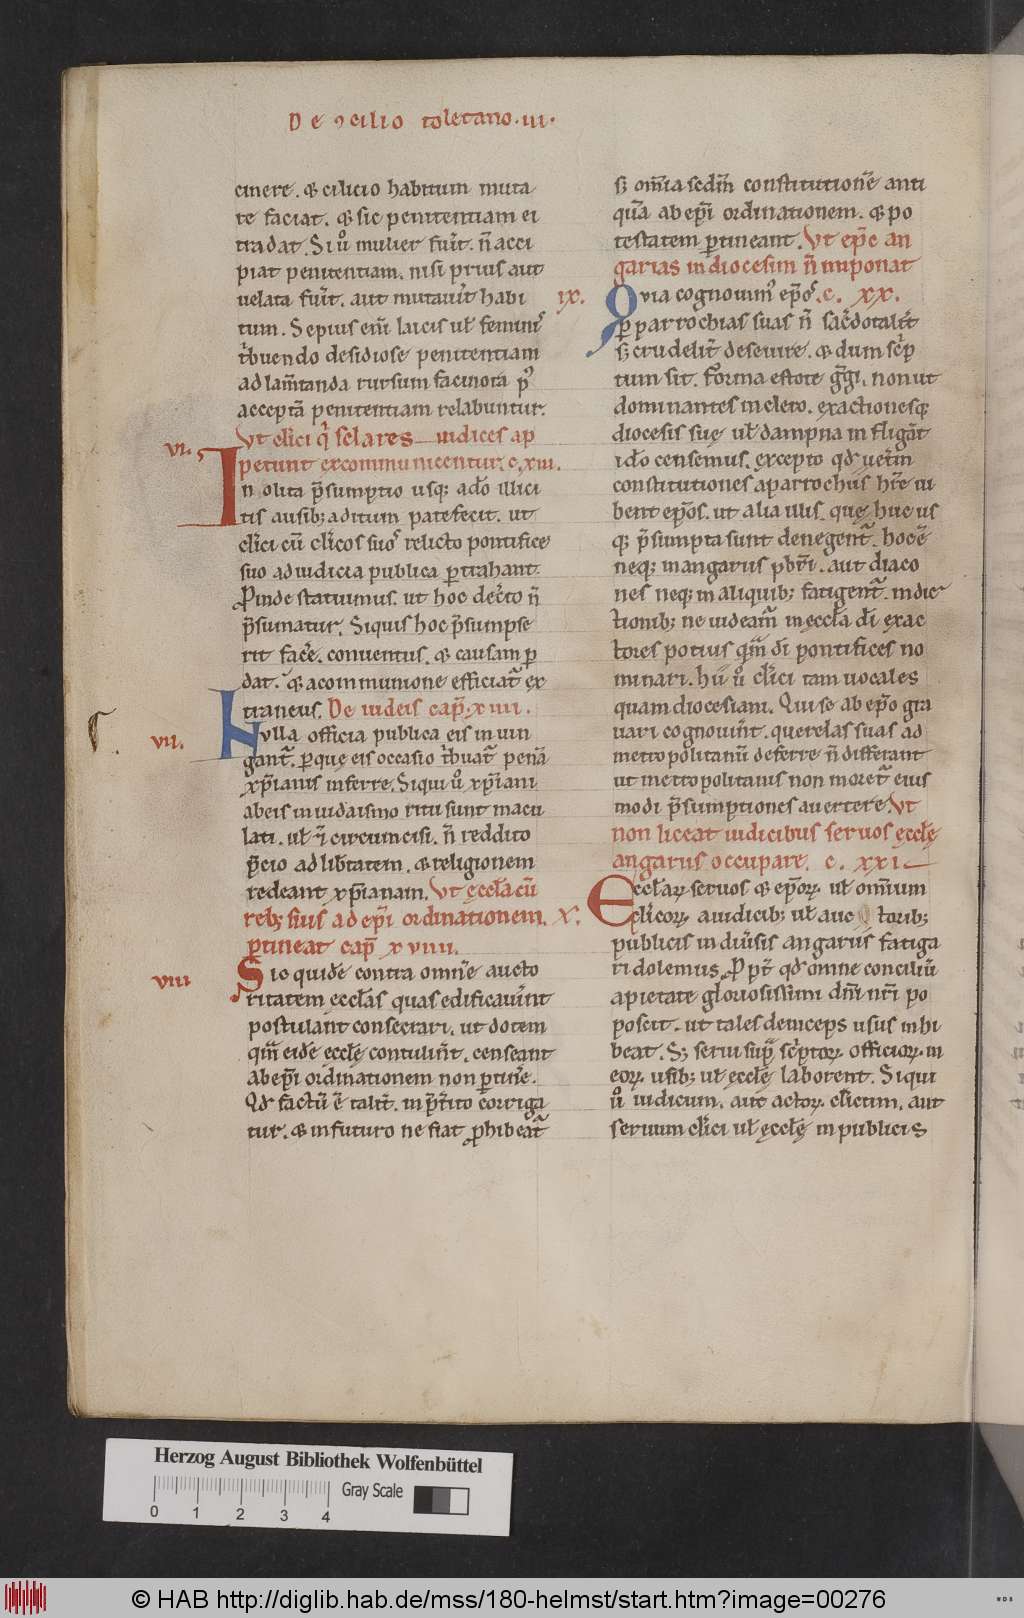 De ꝯcilio toletano. III.
cinere. & cilicio habitum muta
re faciat. & sic penitentiam ei
tradat. Si ů mulier fuit̃. ñ acci
piat penitentiam. nisi prius aut
uelata fuit̃. aut mutauit̃ habi
tum. Sepius eni͂ laicis ul̃ feminis
t̃buendo desidiose penitentiam
ad lam̃tanda rursum facinora p᷒
acceptã penitentiam relabuntur.
Vt cl̃ici q̇ sclares iudices ap
VI.
petunt excommunicentur. c. XIII.
In olita p̃sumptio usq; adõ illici
tis ausib; aditum patefecit. ut
cl̃ici cũ cl̃icos suos relicto pontifice
suo ad iudicia publica ꝑtrahant.
Proinde statuimus. ut hoc dec̃to ñ
p̃sumatur. Siquis hoc p̃sumpse
rit fac̃e. conuentus. & causam ꝑ
dat. & acommunione efficiat᷑ ex
traneus. De iudeis cap̃. XIIII.
VII.
Nulla officia publica eis iniun
gant᷑. ꝑ que eis occasio t̃buat᷑ penã
xp̃ianis inferre. Siqui ů xp̃iani
abeis iniudaismo ritu sunt macu
lati. ul̃ &̃ circumcisi. ñ reddito
p̃cio ad lib̃tatem. & religionem
redeant xp̃ianam. Vt eccl̃a cũ
reb; suis ad ep̃i ordinationem.
ꝑtineat cap̃ XVIIII.
VIII
Sic quidẽ contra omnẽ aucto
ritatem ęccl̃as quas edificauit̃nt
postulant consecrari. ut dotem
qm̃ eidẽ eccl̃ę contulint̃. censeant
ab ep̃i ordinationem non ꝑtinẽ.
Qd̃ factũ ẽ talit̃. in p̃t̃ito corriga
tur. & in futuro ne fiat ꝓhibeat᷑
s; om̃ia scd̃m constitutionẽ anti
quã ab ep̃i ordinationem. & po
testatem ꝑtineant. Vt ep̃c an
garias in diocesim ñ imponat
IX.
Quia cognouim᷒ ep̃os. c. XX.
ꝑ parrochias suas ñ sac̃dotalit̃
s; crudelit̃ deseuire. & dum sc̃p
tum sit. forma estote g̃gi. non ut
dominantes in clero. exactionesq;
diocesis suę ul̃ dampna infligãt
idõ censemus. excepto qd̃ uet̃um
constitutiones aparrochiis hr̃e iu
bent ep̃os. ut alia illis. quę huc us
q; p̃sumpta sunt denegent᷑. hoc ẽ
neq; in angariis pbr̃i. aut diaco
nes neq; in aliquib; fatigent᷑. indic
tionib; ne uideam᷑ in eccl̃a di exac
tores potius qm̃ di pontifices no
minari. hii ů cl̃ici tam uocales
quam diocesiani. Qui se ab ep̃o gra
uari cognouint̃. querelas suas ad
metropolitanũ deferre ñ differant
ut metropolitanus non moret᷑ eius
modi p̃sumptiones auertere. Vt
non liceat iudicibus seruos eccl̃ę
angariis occupare. c. XXI.
X.
Eccl̃arꝝ seruos & ep̃orꝝ. ul̃ omnium
cl̃icorꝝ a iudicib; ul̃ auc toribꝫ
publicis in diũsis angariis fatiga
ri dolemus. Propt̃ qd̃ omne conciliũ
apietate gloriosissimi dñi nr̃i po
poscit. ut tales deinceps usus inhi
beat. S; serui sup̃ sc̃ptorꝝ officiorꝝ. in
eorꝝ usib; ul̃ ęccl̃ę laborent. Siqui
ů iudicum. aut actorꝝ. cl̃icum. aut
seruum cl̃ici ul̃ ęccl̃ę in publicis
Herzog August Bibliothek Wolfenbüttel
Gray Scale
0 1 2 3 4
© HAB http://diglib.hab.de/mss/180-helmst/start.htm?image=00276